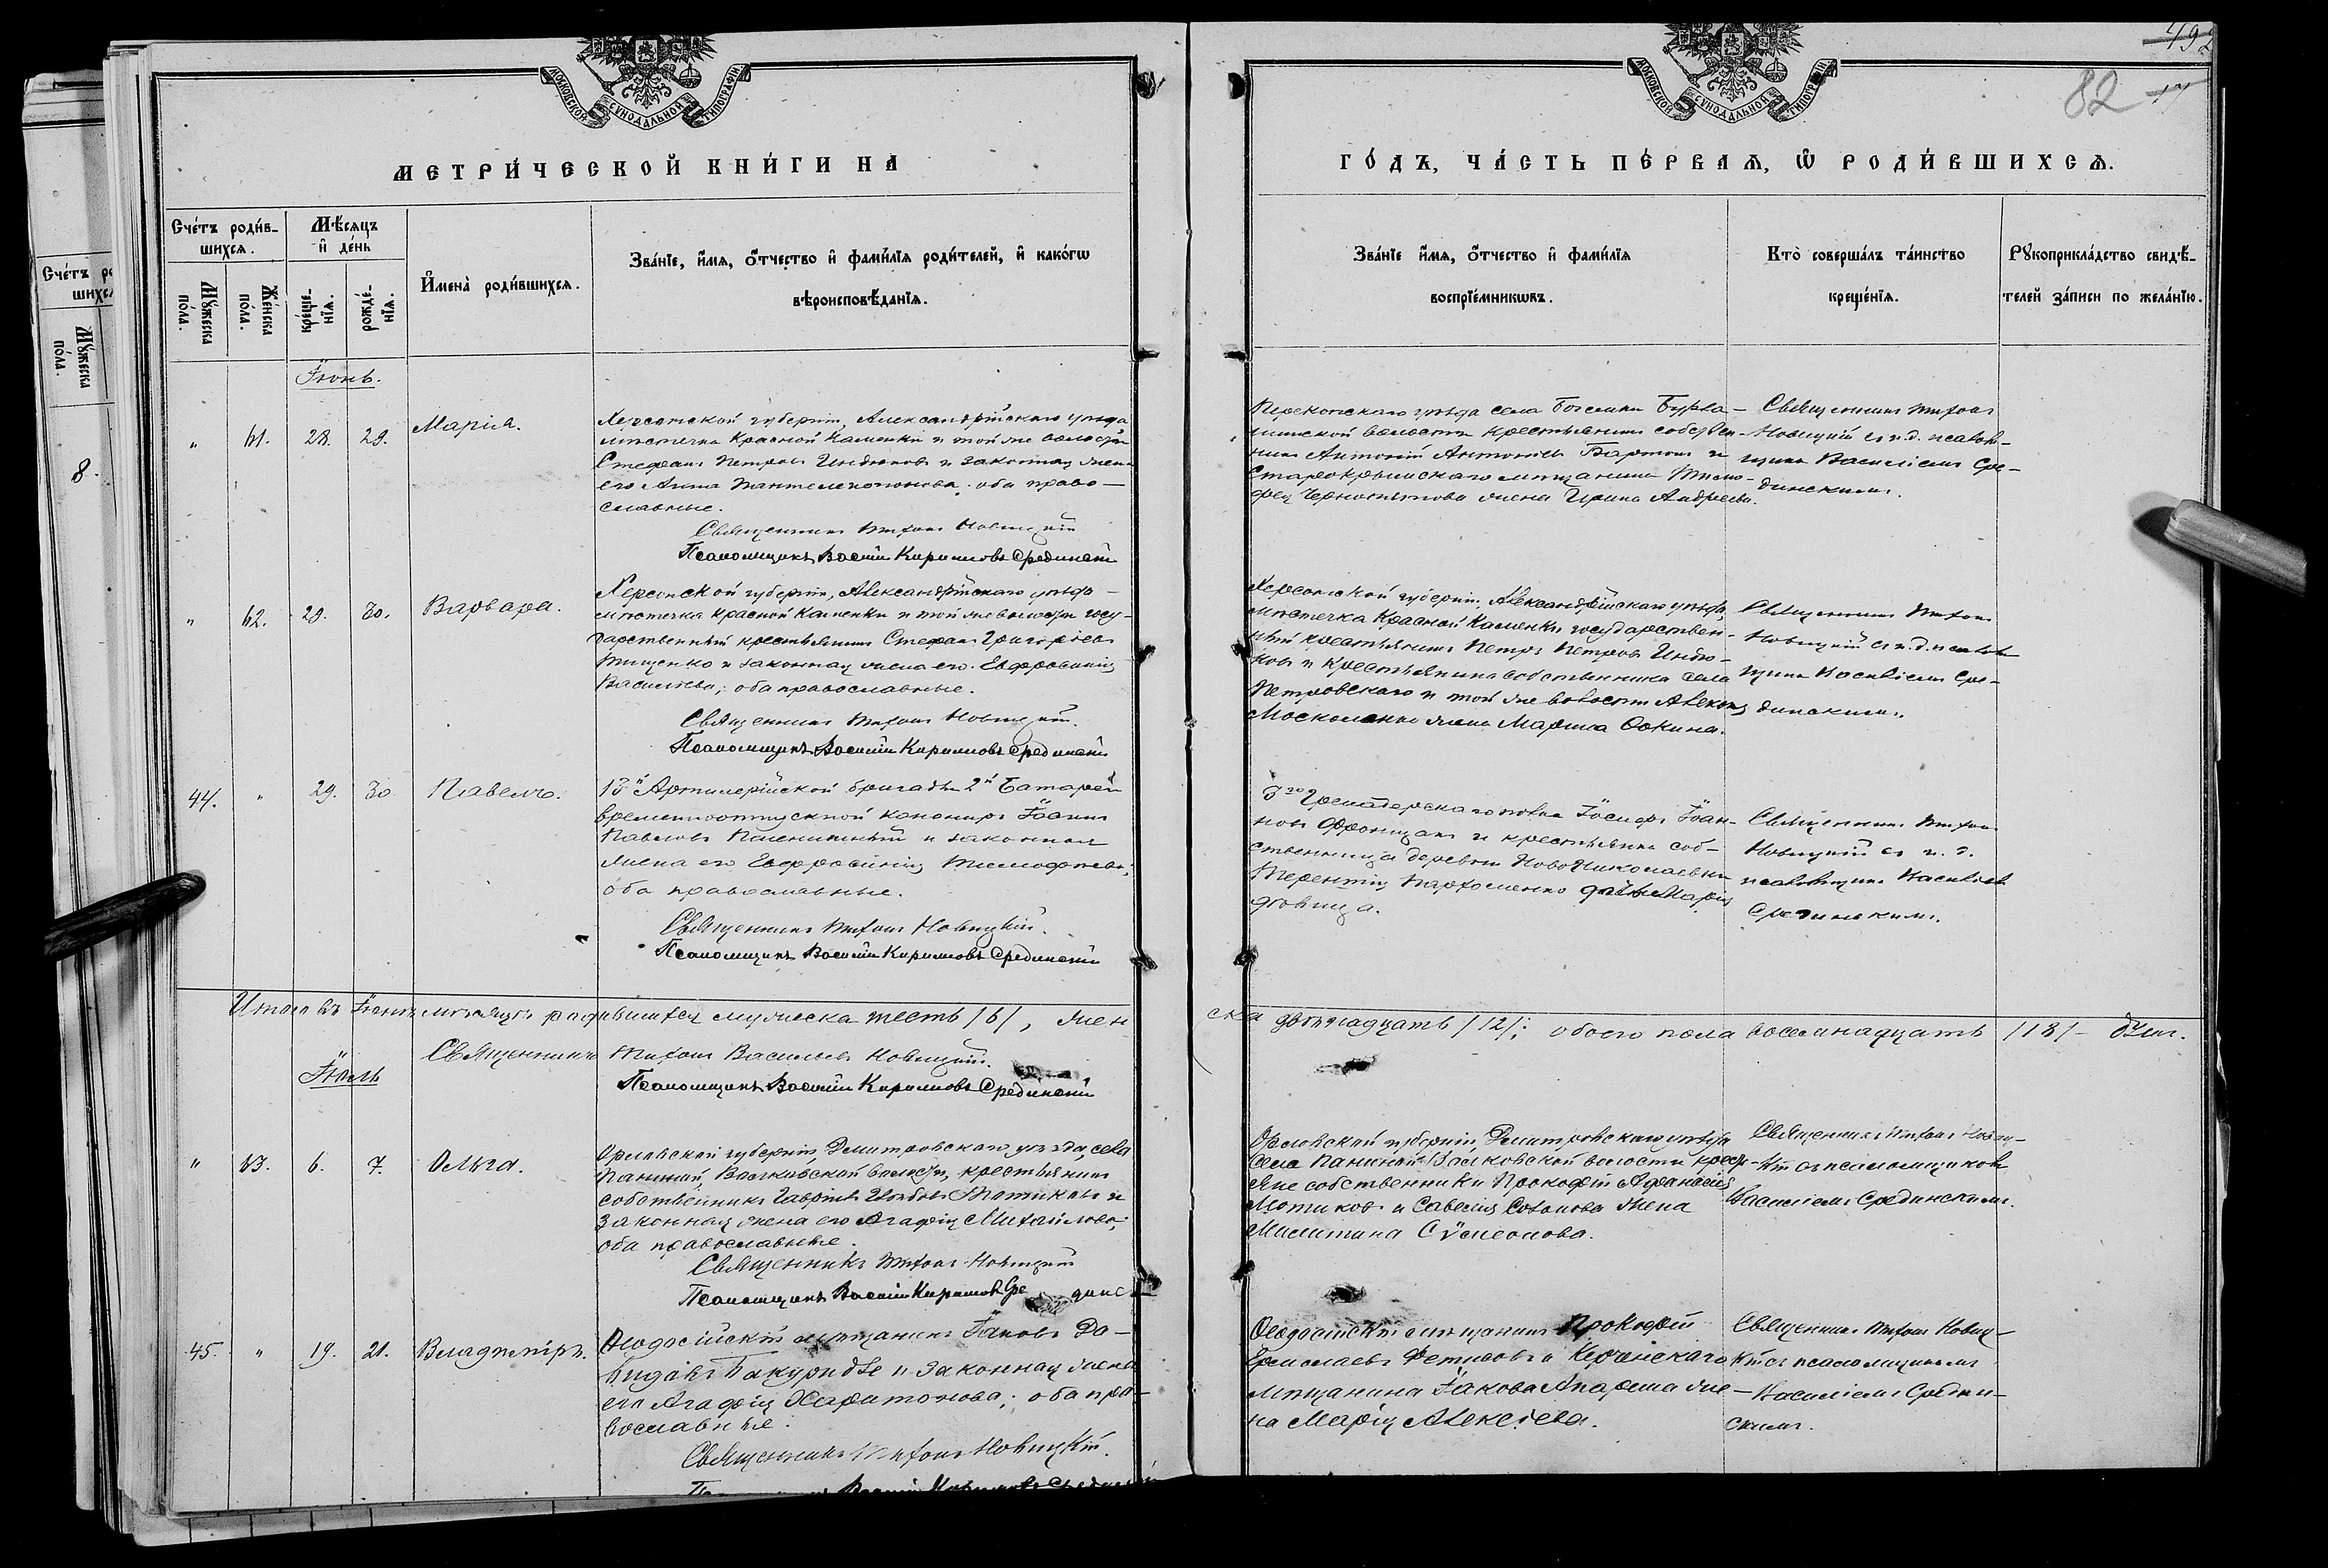 492
82
МОСКОВСКОЙ СѴНОДАЛЬНОЙ ТИПОГРАФІИ
МЕТРИ́ЧЕСКОЙ КНИ́ГИ НА
Сче́тъ роди́в-
шихсѧ.
Мѣ́сяцъ
и҆ де́нь
И҆мена̀ роди́вшихсѧ.
Зва́нїе, и҆́мѧ, ѻ҆́тчество и҆ фами́лїѧ роди́телей, и҆ како́гѡ
вѣроисповѣ́данїѧ.
Мꙋ́жеска
по́ла.
Же́нска
по́ла.
креще́-
нїѧ.
рожде́-
нїѧ.
Іюнь.
" 61. 28. 29. Марія.
Херсонской губерніи, Александрійскаго уѣзда
мѣстечка Красной Каменки и той же волости
Стефанъ Петровъ Индюковъ и законная жена
его Анна Пантелеимонова; оба право-
славные.
Священникъ Тихонъ Новицкій
Псаломщикъ Василій Кирилловъ Срединскій
" 62. 29. 30. Варвара.
Херсонской губерніи, Александрійскаго уѣзда
мѣстечка Красной Каменки и той же волости госу-
дарственный крестьянинъ Стефанъ Григоріевъ
Тищенко и законная жена его Евфросинія
Васильева; оба православные.
Священникъ Тихонъ Новицкій.
Псаломщикъ Василій Кирилловъ Срединскій
44. " 29. 30 Павелъ.
13й Артилерійской бригады 2й Батареи
временноотпускной канониръ Іоаннъ
Павловъ и законная
жена его Евфросинія Тимофѣева;
оба православные.
Священникъ Тихонъ Новицкій.
Псаломщикъ Василій Кирилловъ Срединскій
Итого въ Іюнѣ мѣсяцѣ родившихся мужеска шесть /6/, жен
Священникъ Тихонъ Васильевъ Новицкій.
Іюль
Псаломщикъ Василій Кирилловъ Срединскій
" 63. 6. 7. Ольга.
Орловской губерніи, Дмитровскаго уѣзда, села
волости, крестьянинъ
собственникъ Гавріилъ Мотиковъ и
законная жена его Агафія Михайлова;
оба православные.
Священникъ Тихонъ Новицкій
Псаломщикъ Василій Кирилловъ Сре динс
45. " 19. 21. Владиміръ.
Ѳеодосійскій мѣщанинъ Іаковъ Да-
видовъ Бакуридзе и законная жена
его Агафія Харитонова; оба пра-
вославные.
Священникъ Тихонъ Новицкій.
МОСКОВСКОЙ СѴНОДАЛЬНОЙ ТИПОГРАФІИ
ГО́ДЪ, ЧА́СТЬ ПЕ́РВАѦ, Ѡ҆ РОДИ́ВШИХСѦ.
Зва́нїе и҆́мѧ, ѻ҆́тчество и҆ фами́лїѧ
воспрїе́мникѡвъ.
Кто̀ соверша́лъ та́инство
креще́нїѧ.
Рꙋкоприкла́дство свидѣ́-
телей за́писи по жела́нїю.
Перекопскаго уѣзда села Богемки
волости крестьянинъ собствен-
никъ Антоній Антоновъ Бартошъ и
Старокрымскаго мѣщанина Тимо-
фея жена Ирина Андреева.
Священникъ Тихонъ
Новицкій съ и.д. псалом-
щика Василіемъ Сре-
динскимъ.
Херсонской губерніи, Александрійскаго уѣзда,
мѣстечка Красной Каменки государствен-
ный крестьянинъ Петръ Петровъ Индю-
ковъ и крестьянина собственника села
Петровскаго и той же волости Алексія
Москаленко жена Марина Ѳокина.
Священникъ Тихонъ
Новицкій съ и.д. псалом
щика Василіемъ Сре-
динскимъ.
3го Гренадерскаго полка Іосифъ Іоан-
новъ и крестьянина соб-
ственника деревни Новониколаевки
Терентія Пархоменко дочь Марія
дѣвица.
Священникъ Тихонъ
Новицкій съ и. д.
псаломщика Василіемъ
Срединскимъ.
ска двѣнадцать /12/; обоего пола восемнадцать /18/ душ.
Орловской губерніи, Дмитровскаго уѣзда
села волости кресть-
яне собственники Прокофій Аѳанасіевъ
Мотиковъ и Савелія жена
Милитина Сѵмеонова.
Священникъ Тихонъ Новиц-
кій съ псаломщикомъ
Василіемъ Срединскимъ.
Ѳеодосійскій мѣщанинъ Прокофій
Ермолаевъ Фетисовъ и Керченскаго
мѣщанина Іакова же-
на Марія Алексіева.
Священникъ Тихонъ Новиц-
кій съ псаломщикомъ
Василіемъ Средин-
скимъ.
Сче́тъ ро
шихсѧ
Мꙋ́жеска
по́ла.
8.